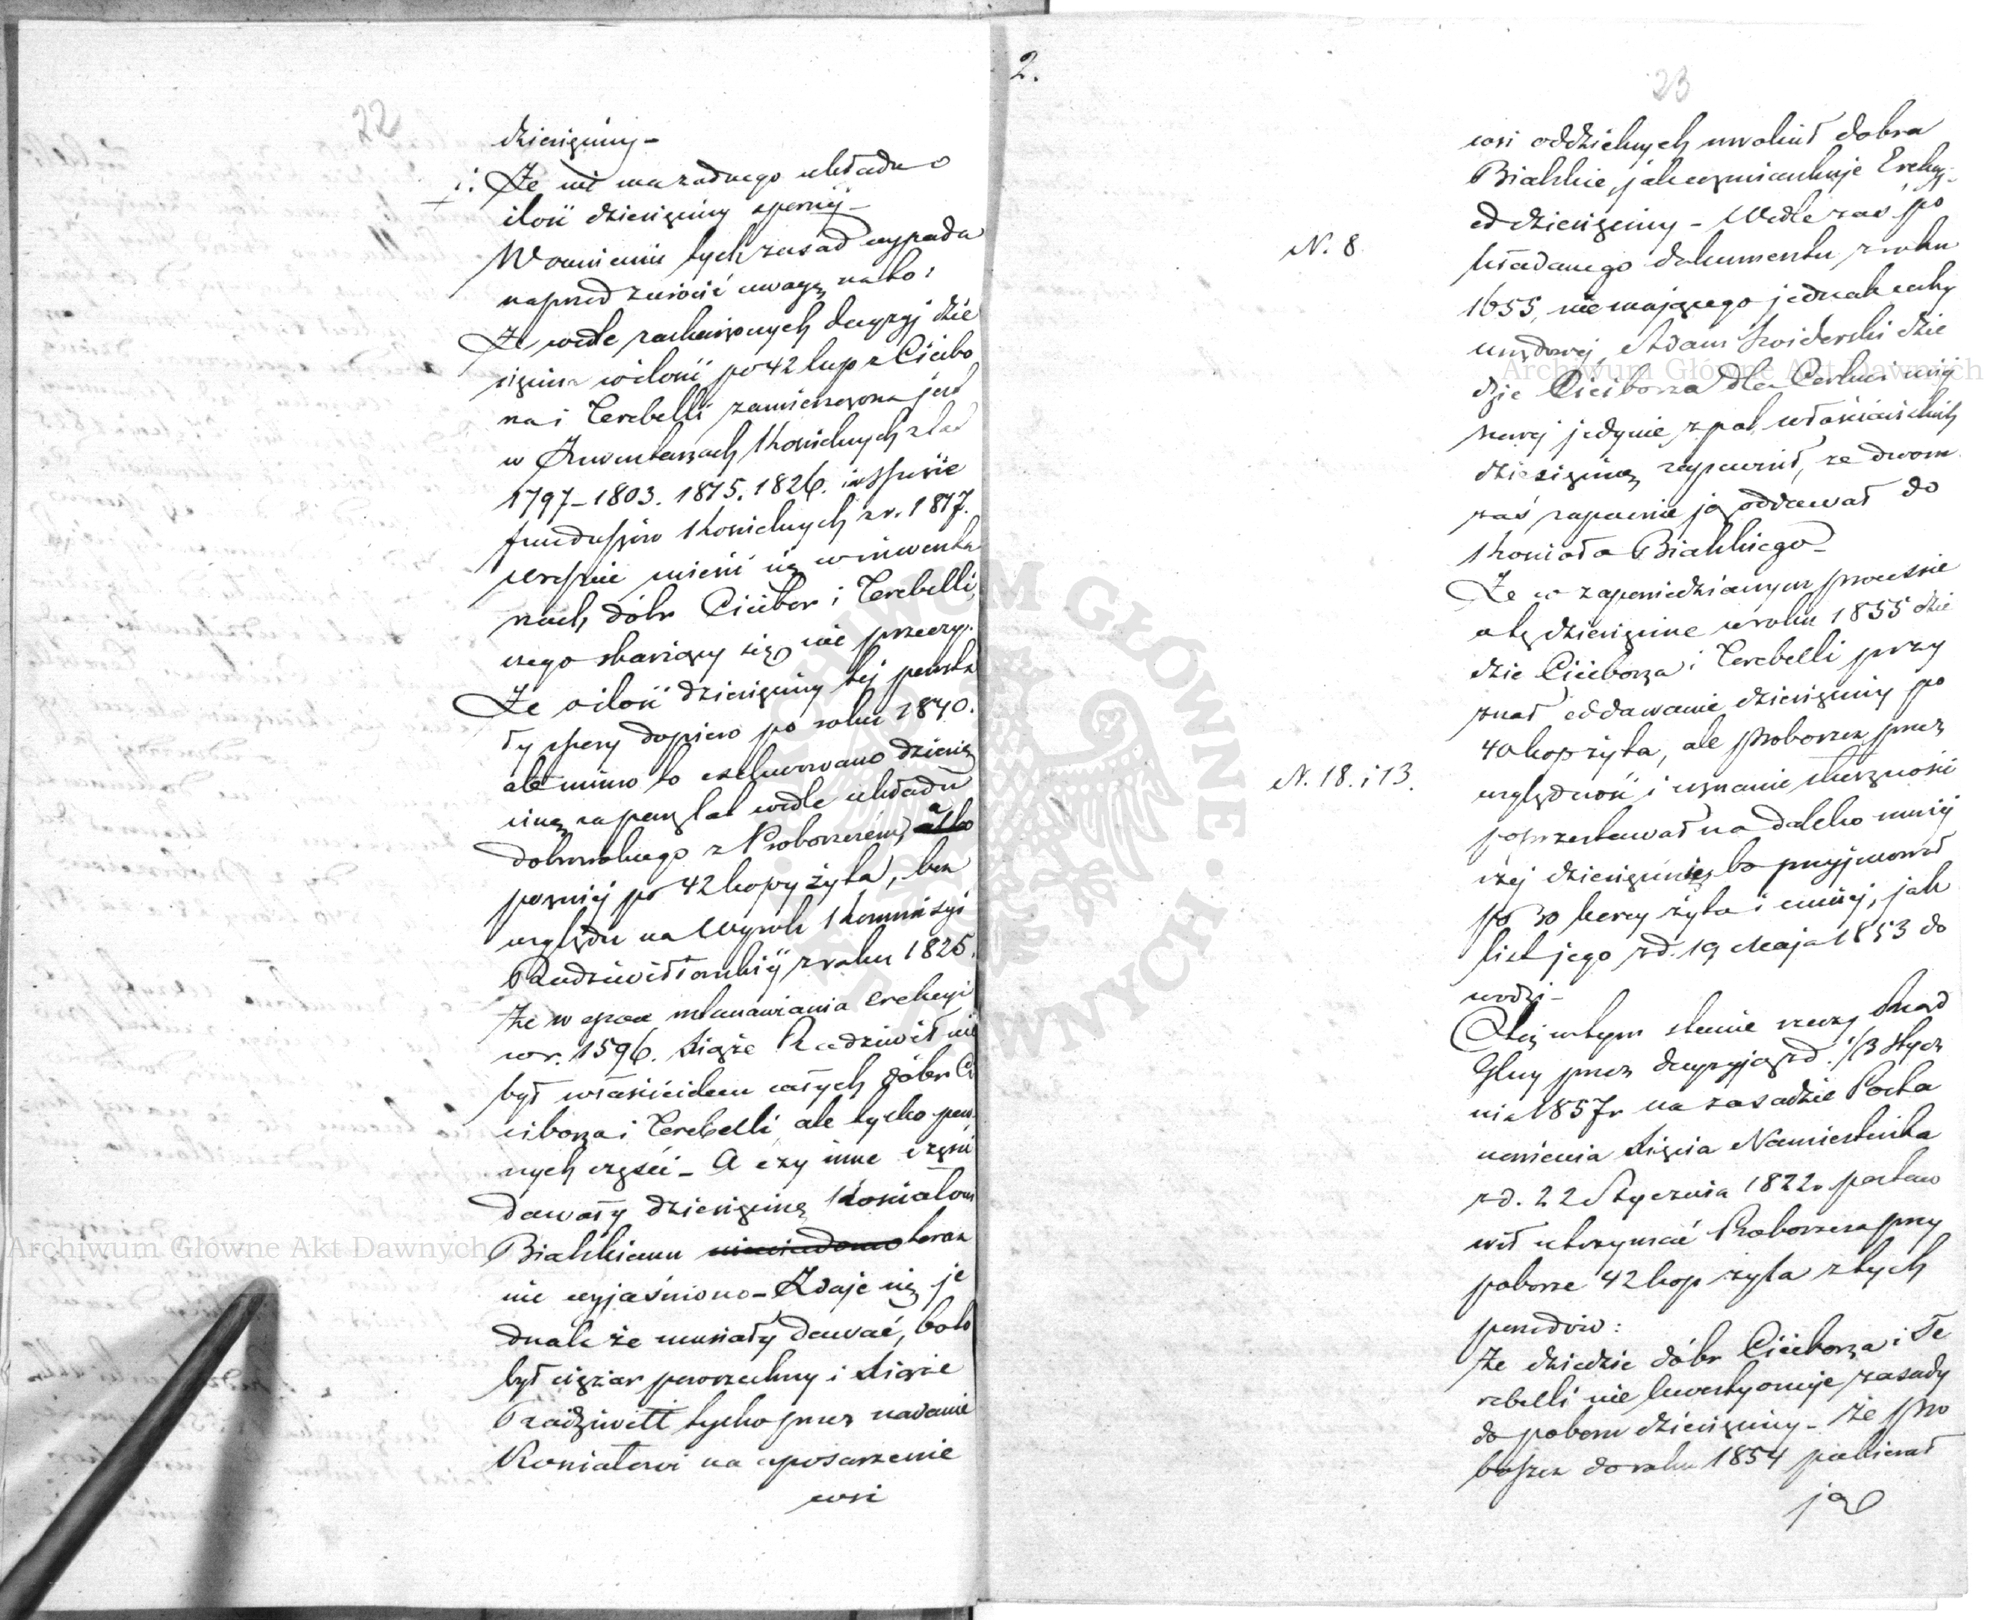 22
dziesięciny –
i: Że nie ma żadnego układu o
ilość dziesięciny spornéj –
W ocenieniu tych zasad wypada
naprzód zwrócić uwagę na to:
Że wedle zaskarżonych decyzyj dzie
sięcina w ilości po 42 kop z Cicibo
ra i Terebelli zamieszczona jest
w Inwentarzach Kościelnych z lat
1797 – 1803. 1815. 1826. i w spisie
funduszów Kościelnych z r. 1817.
wreszcie mieści się w inwenta
rzach dóbr Cicibor i Terebelli,
czego skarżący się nie przeczy.
Że o ilość dziesięciny téj powsta
ły spory dopiero po roku 1840.
ale mimo to exekwowano dziesię
cinę za pięć lat wedle układu
dobrowolnego z Proboszczem, a
późniéj po 42 kopy żyta, bez
względu na Wyrok Kommissyi
Radziwiłłowskiéj z roku 1825.
Że w epoce stanowienia erekcyi
w r. 1596. Xiąże Radziwiłł nie
był właścicielem całych dóbr Ci
ciborza i Terebelli, ale tylko pew
nych części – A czy inne części
dawały dziesięcinę Kościołowi
Bialskiemu niewiadomo teraz
nie wyjaśniono – Zdaje się je
dnak że musiały dawać, bo to
był ciężar powszechny i Xiąże
Radziwiłł tylko przez nadanie
Kościołowi na uposażenie
wsi
2.
23
wsi oddzielnych uwolnił dobra
Bialskie, jak wzmiankuje Erekcy
od dziesięciny – Wedle zaś po
N. 8
kładanego dokumentu z roku
1655, nie mającego jednak cechy
urzędowéj, Adam Świderski dzie
dzic Ciciborza dla Cerkwi miéj
scowéj jedynie z pol włościańskich
dziesięcinę zapewnił, ze dworn
zaś zapewnie ją oddawał do
Kościoła Bialskiego –
Że w zapowiedzianym processie
o tę dziesięcinę w roku 1855 dzie
dzic Ciciborza i Terebelli przy
znał oddawanie dziesięciny po
40 kop żyta, ale Proboszcz przez
N. 18. i 13.
względność i uznanie słuszności
poprzestawał na daleko mniéj
széj dziesięcinie, bo przyjmował
po 30 korcy żyta i mniéj, jak
list jego z d. 19 Maja 1853 do
wodzi –
Otóż w tym stanie rzeczy Rząd
Glny przez decyzyją z d. 1/13 Stycz
nia 1857 r na zasadzie Posta
nowienia Xięcia Namiestnika
z d. 22 Stycznia 1822 r postano
wił utrzymać Proboszcza przy
poborze 42 kop żyta z tych
powodów:
Że dziedzic dóbr Ciciborza i Te
rebelli nie kwestyonuje zasady
do poboru dziesięciny – że Pro
boszcz do roku 1854 pobierał
ją
Archiwum Główne Akt Dawnych
Archiwum Główne Akt Dawnych
ARCHIWUM GŁÓWNE · AKT DAWNYCH ·